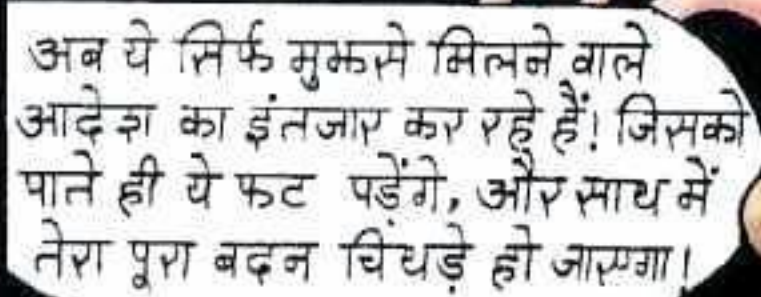 अब ये सिर्फ मुझसे मिलने वाले
आदेश का इंतजार कर रहे हैं! जिसको
पाते ही ये फट पड़ेंगे, और साथ में
तेरा पूरा बदन चिथड़े हो जाएगा!